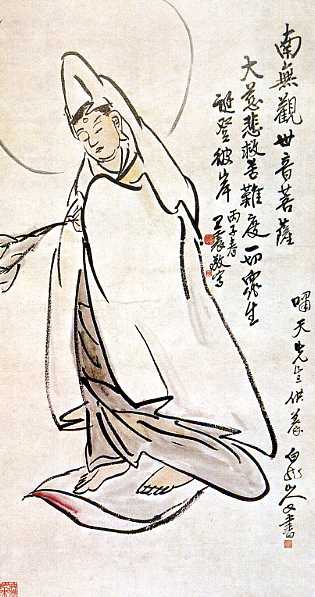 南無觀世音菩薩
大慈悲救苦難度一切眾生
誕登彼岸
丙子春
王震敬寫
嘯天先生供養
白龍山人又書